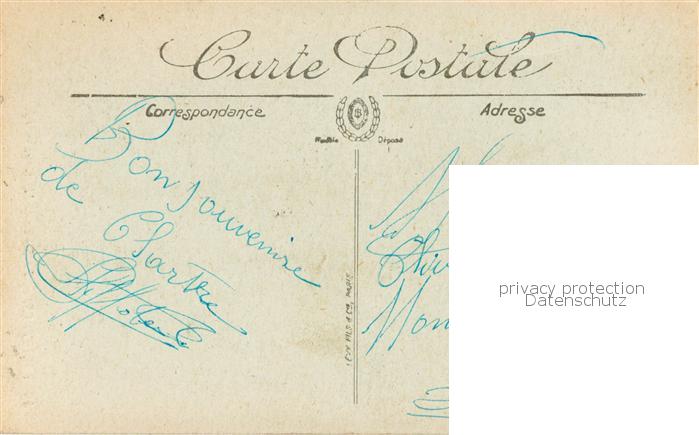 Carte Postale
Correspondance
Adresse
Modèle Déposé
Bon souvenire
de Chartre
LEVY FILS & Cie, PARIS
privacy protection
Datenschutz